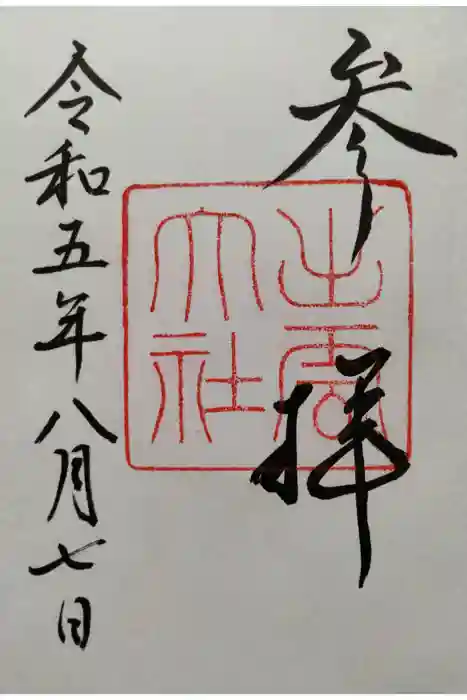 参拝
出雲大社
令和五年八月七日